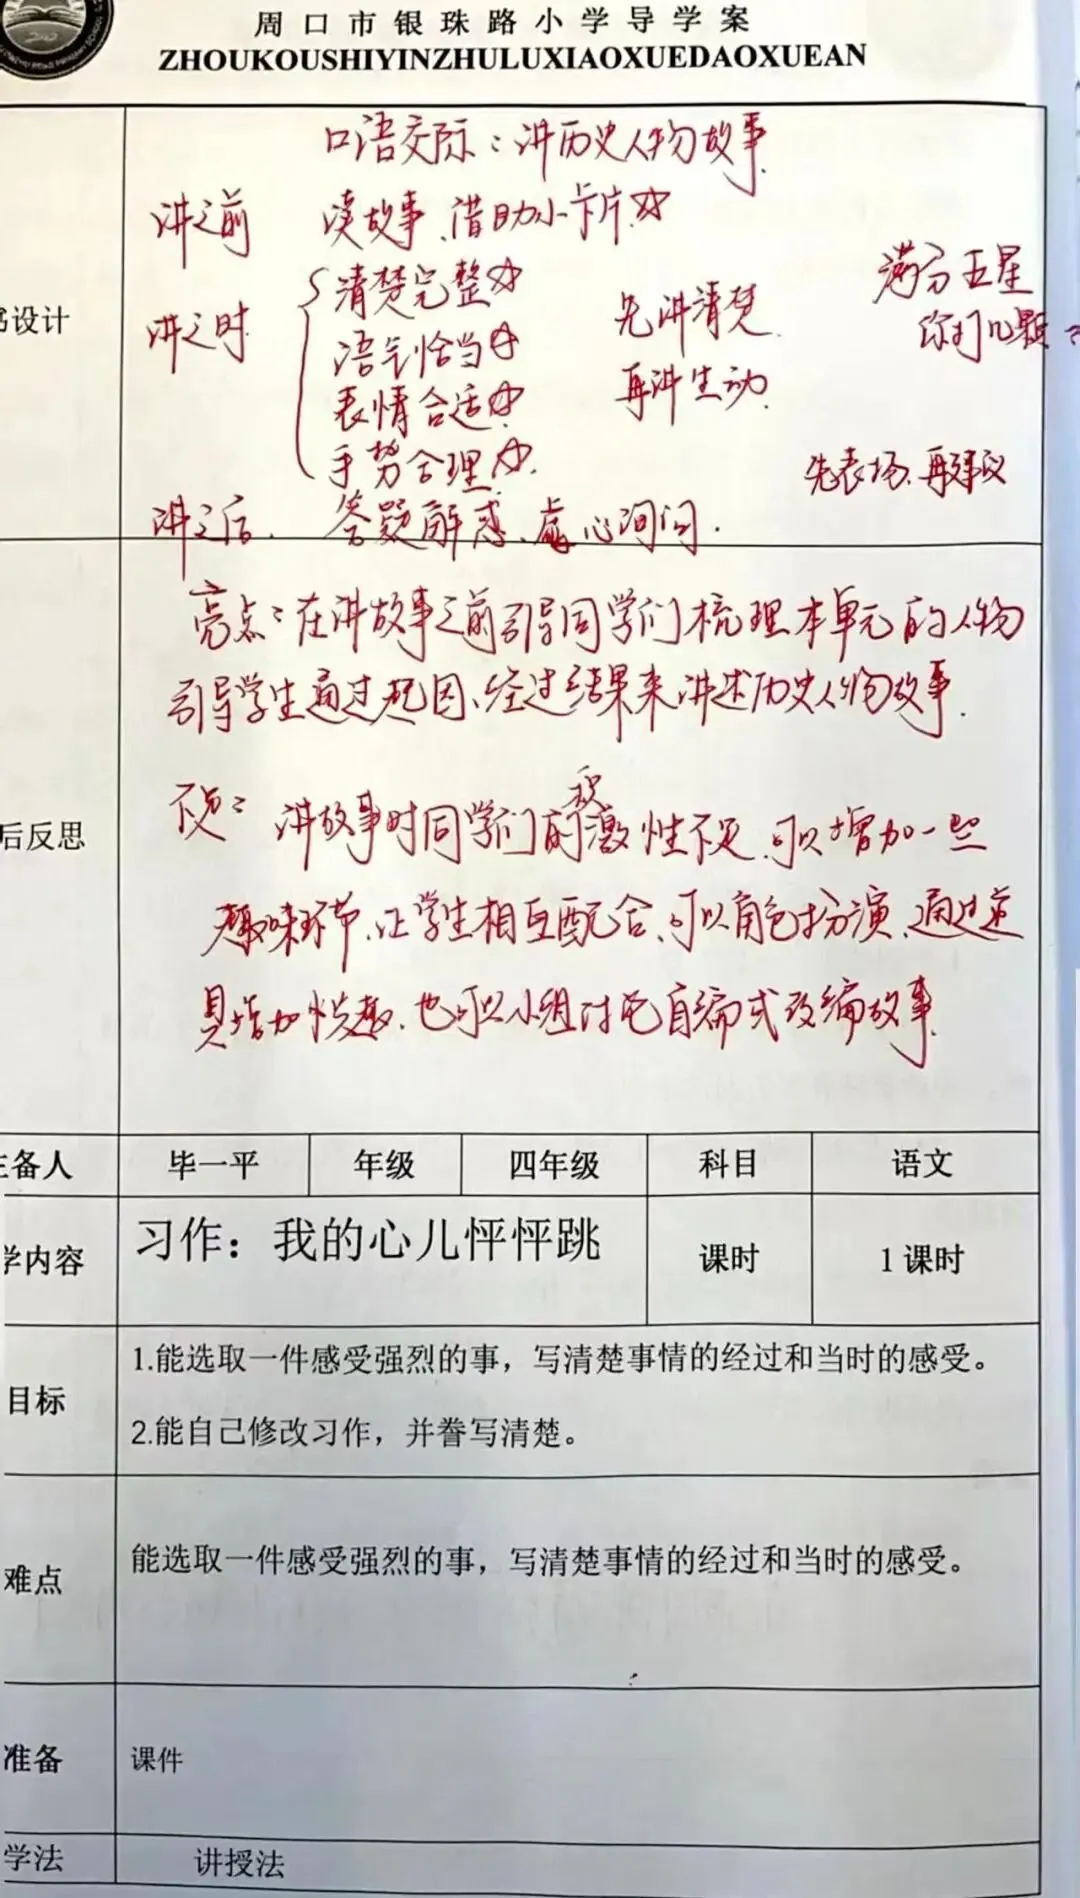 周口市银珠路小学导学案
ZHOUKOUSHIYINZHULUXIAOXUEDAOXUEAN
口语交际：讲历史人物故事
讲之前 读故事、借助小卡片☆
设计 讲之时 清楚完整☆ 先讲清楚 满分五星
语气恰当☆ 你打几颗？
表情合适☆ 再讲生动
手势合理☆ 先表扬、再建议
讲之后 答疑解惑、虚心询问
亮点：在讲故事之前引导同学们梳理本单元的人物
引导学生通过起因、经过结果来讲述历史人物故事
后反思
不足：讲故事时同学们的积激性不足，可以增加一些
趣味环节，让学生相互配合，可以角色扮演，通过道
具增加悦趣，也可以小组讨论自编式改编故事
备人 毕一平 年级 四年级 科目 语文
学内容 习作：我的心儿怦怦跳 课时 1课时
目标 1.能选取一件感受强烈的事，写清楚事情的经过和当时的感受。
2.能自己修改习作，并誊写清楚。
难点 能选取一件感受强烈的事，写清楚事情的经过和当时的感受。
准备 课件
学法 讲授法